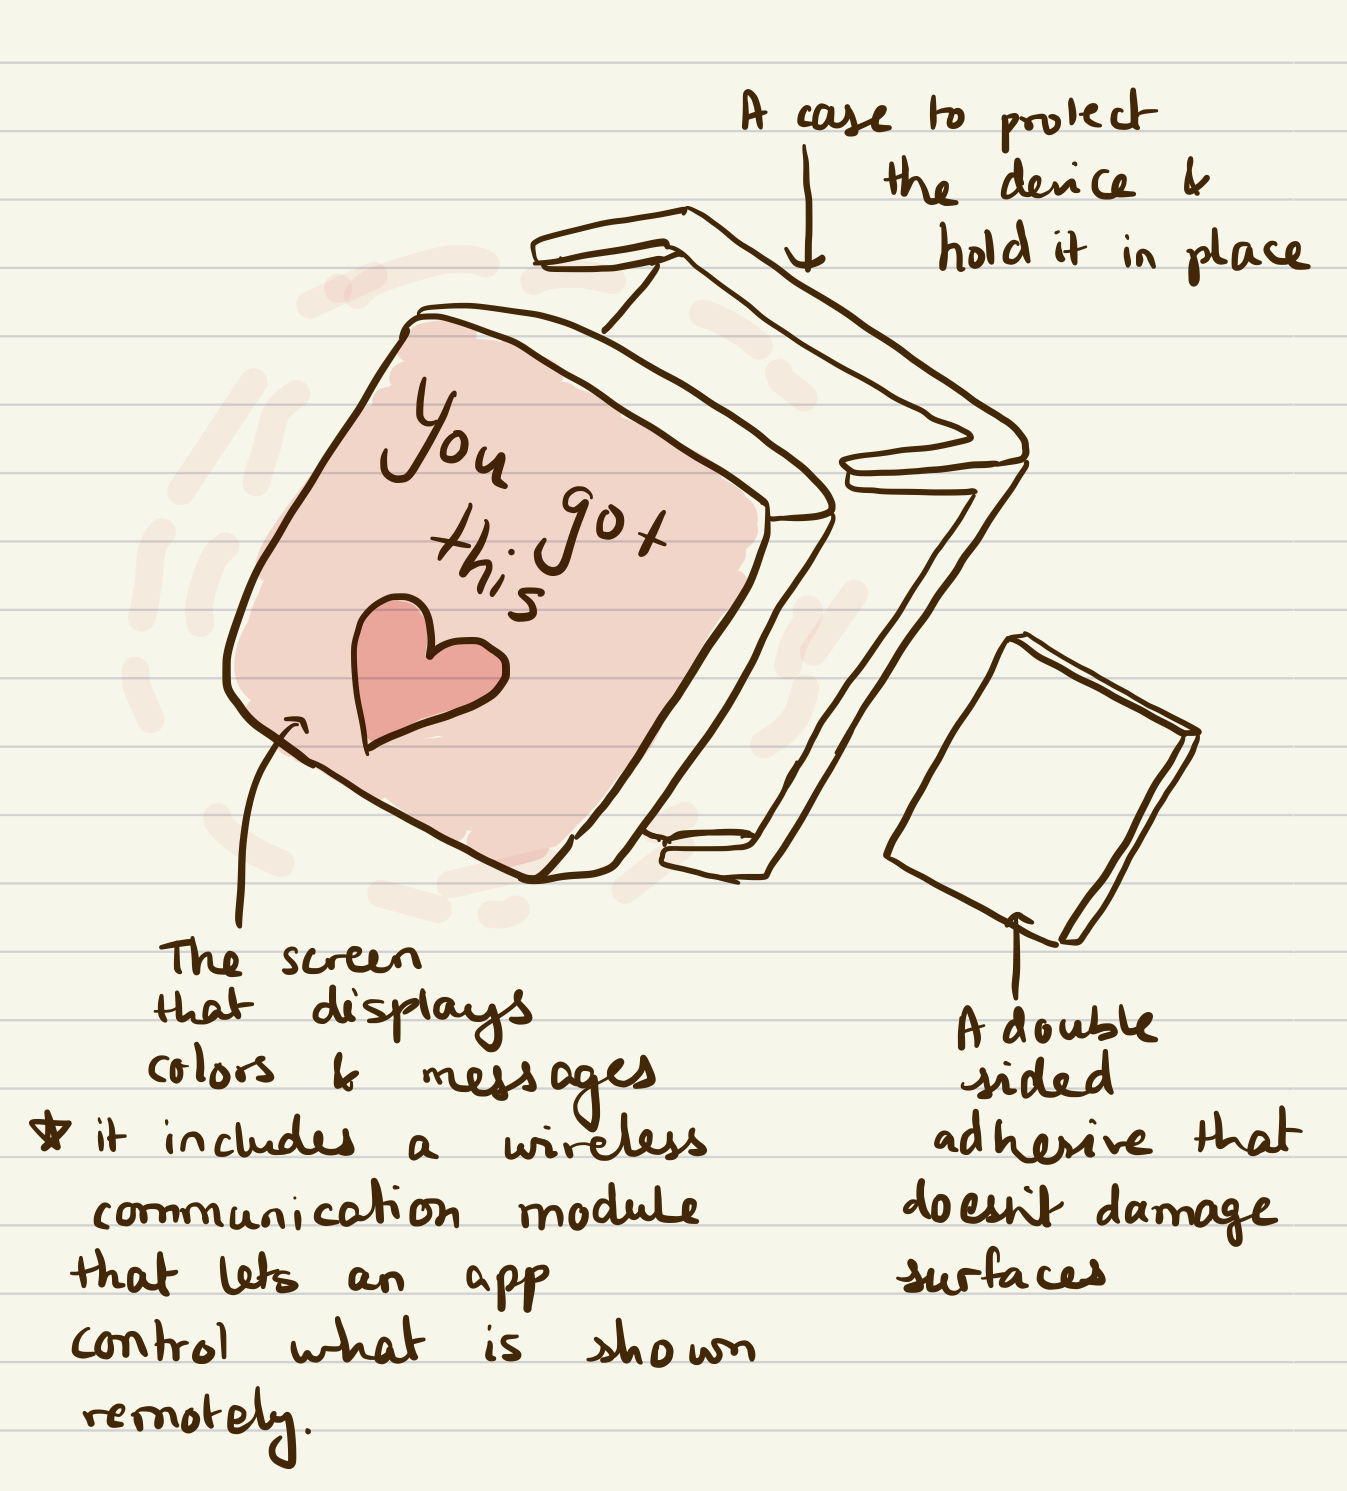 A case to protect
the device &
hold it in place
You got
this
The screen
that displays
colors & messages
it includes a wireless
communication module
that lets an app
control what is shown
remotely.
A double
sided
adhesive that
doesn't damage
surfaces